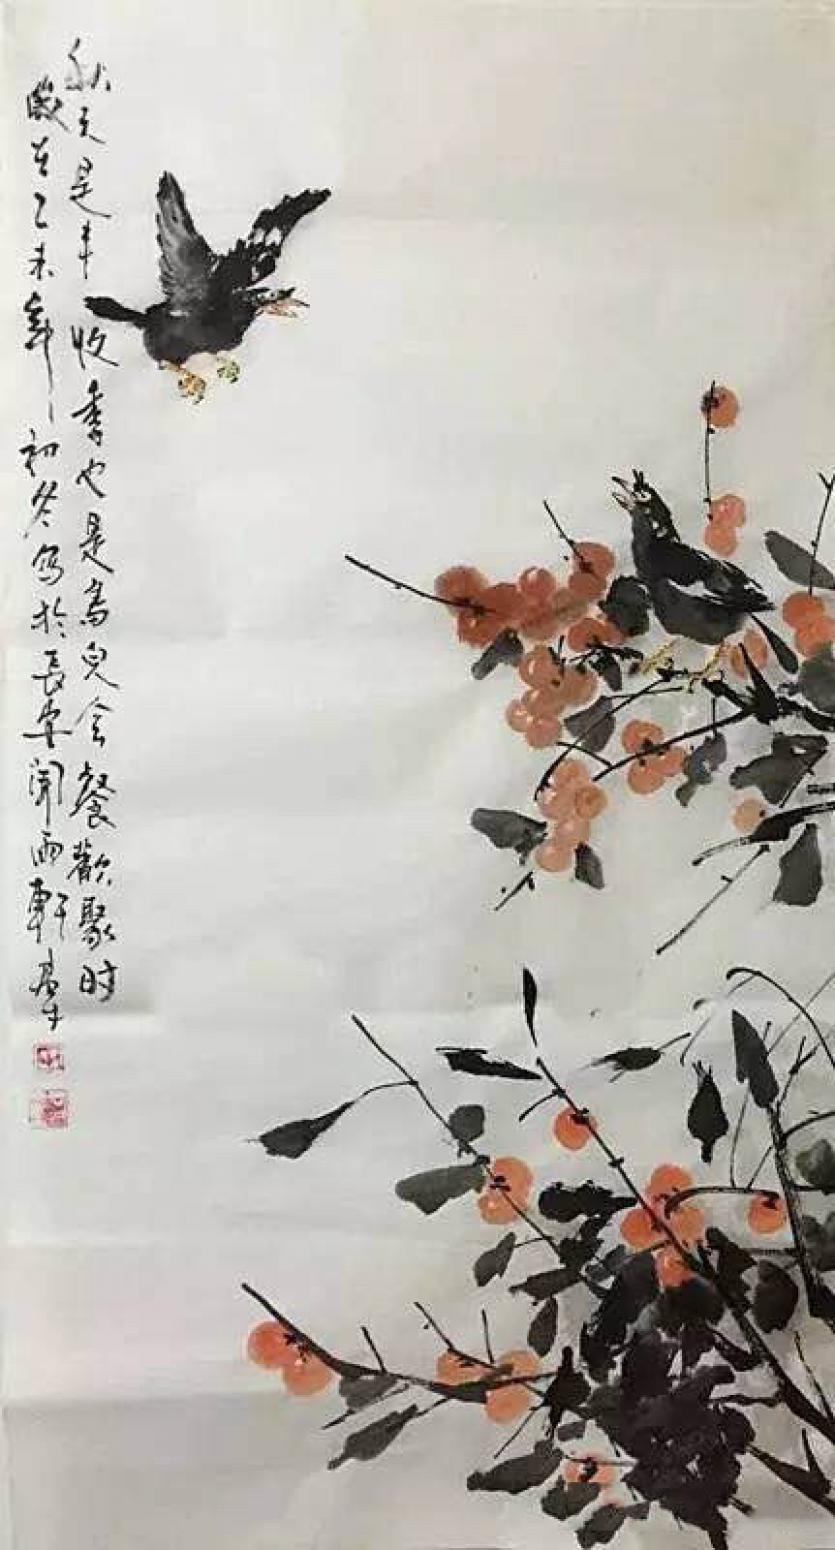 秋天是丰收季也是鸟儿会餐歡聚时
歲在乙未年初冬写於長安闻雨軒